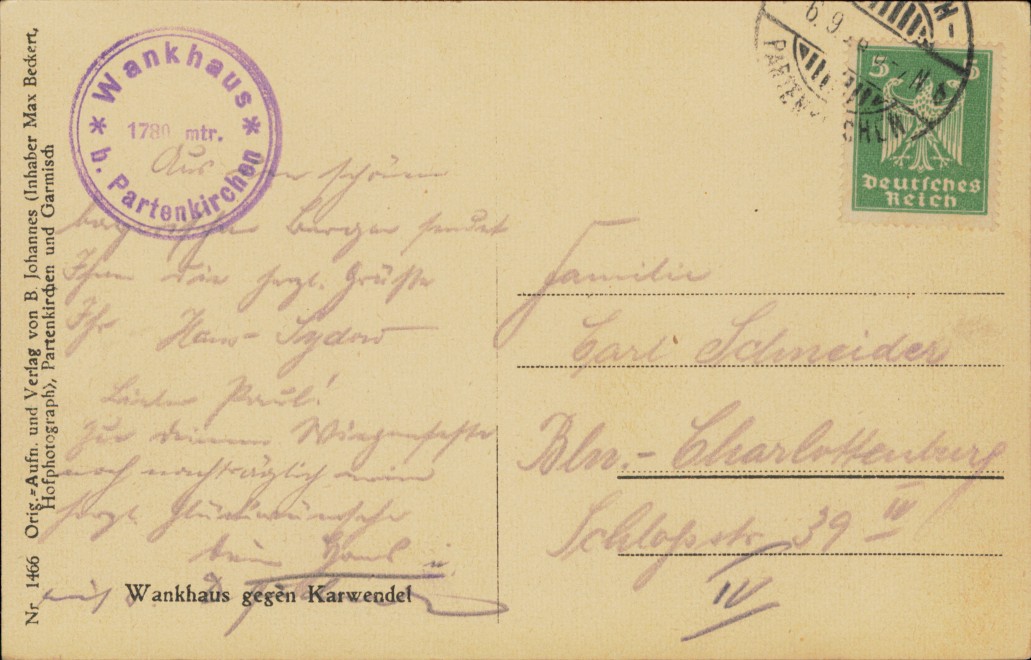 Wankhaus
1780 mtr.
b. Partenkirchen
Aus den schönen
bayrischen Bergen sendet
Ihnen die herzl. Grüße
Ihr Hans Sydow
Lieber Paul!
Zur deinem Wiegenfeste
noch nachträglich meine
herzl. Glückwünsche
dein Hans
Wankhaus gegen Karwendel
Nr. 1466 Orig.-Aufn. und Verlag von B. Johannes (Inhaber Max Beckert,
Hofphotograph), Partenkirchen und Garmisch
6.9.
PARTENKIRCHEN
5 5
Deutsches
Reich
Familie
Carl Schneider
Bln.-Charlottenburg
Schloßstr. 39 IV
IV